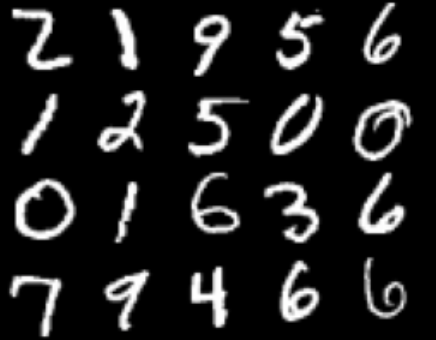 2 1 9 5 6
1 2 5 0 0
0 1 6 3 6
7 9 4 6 6